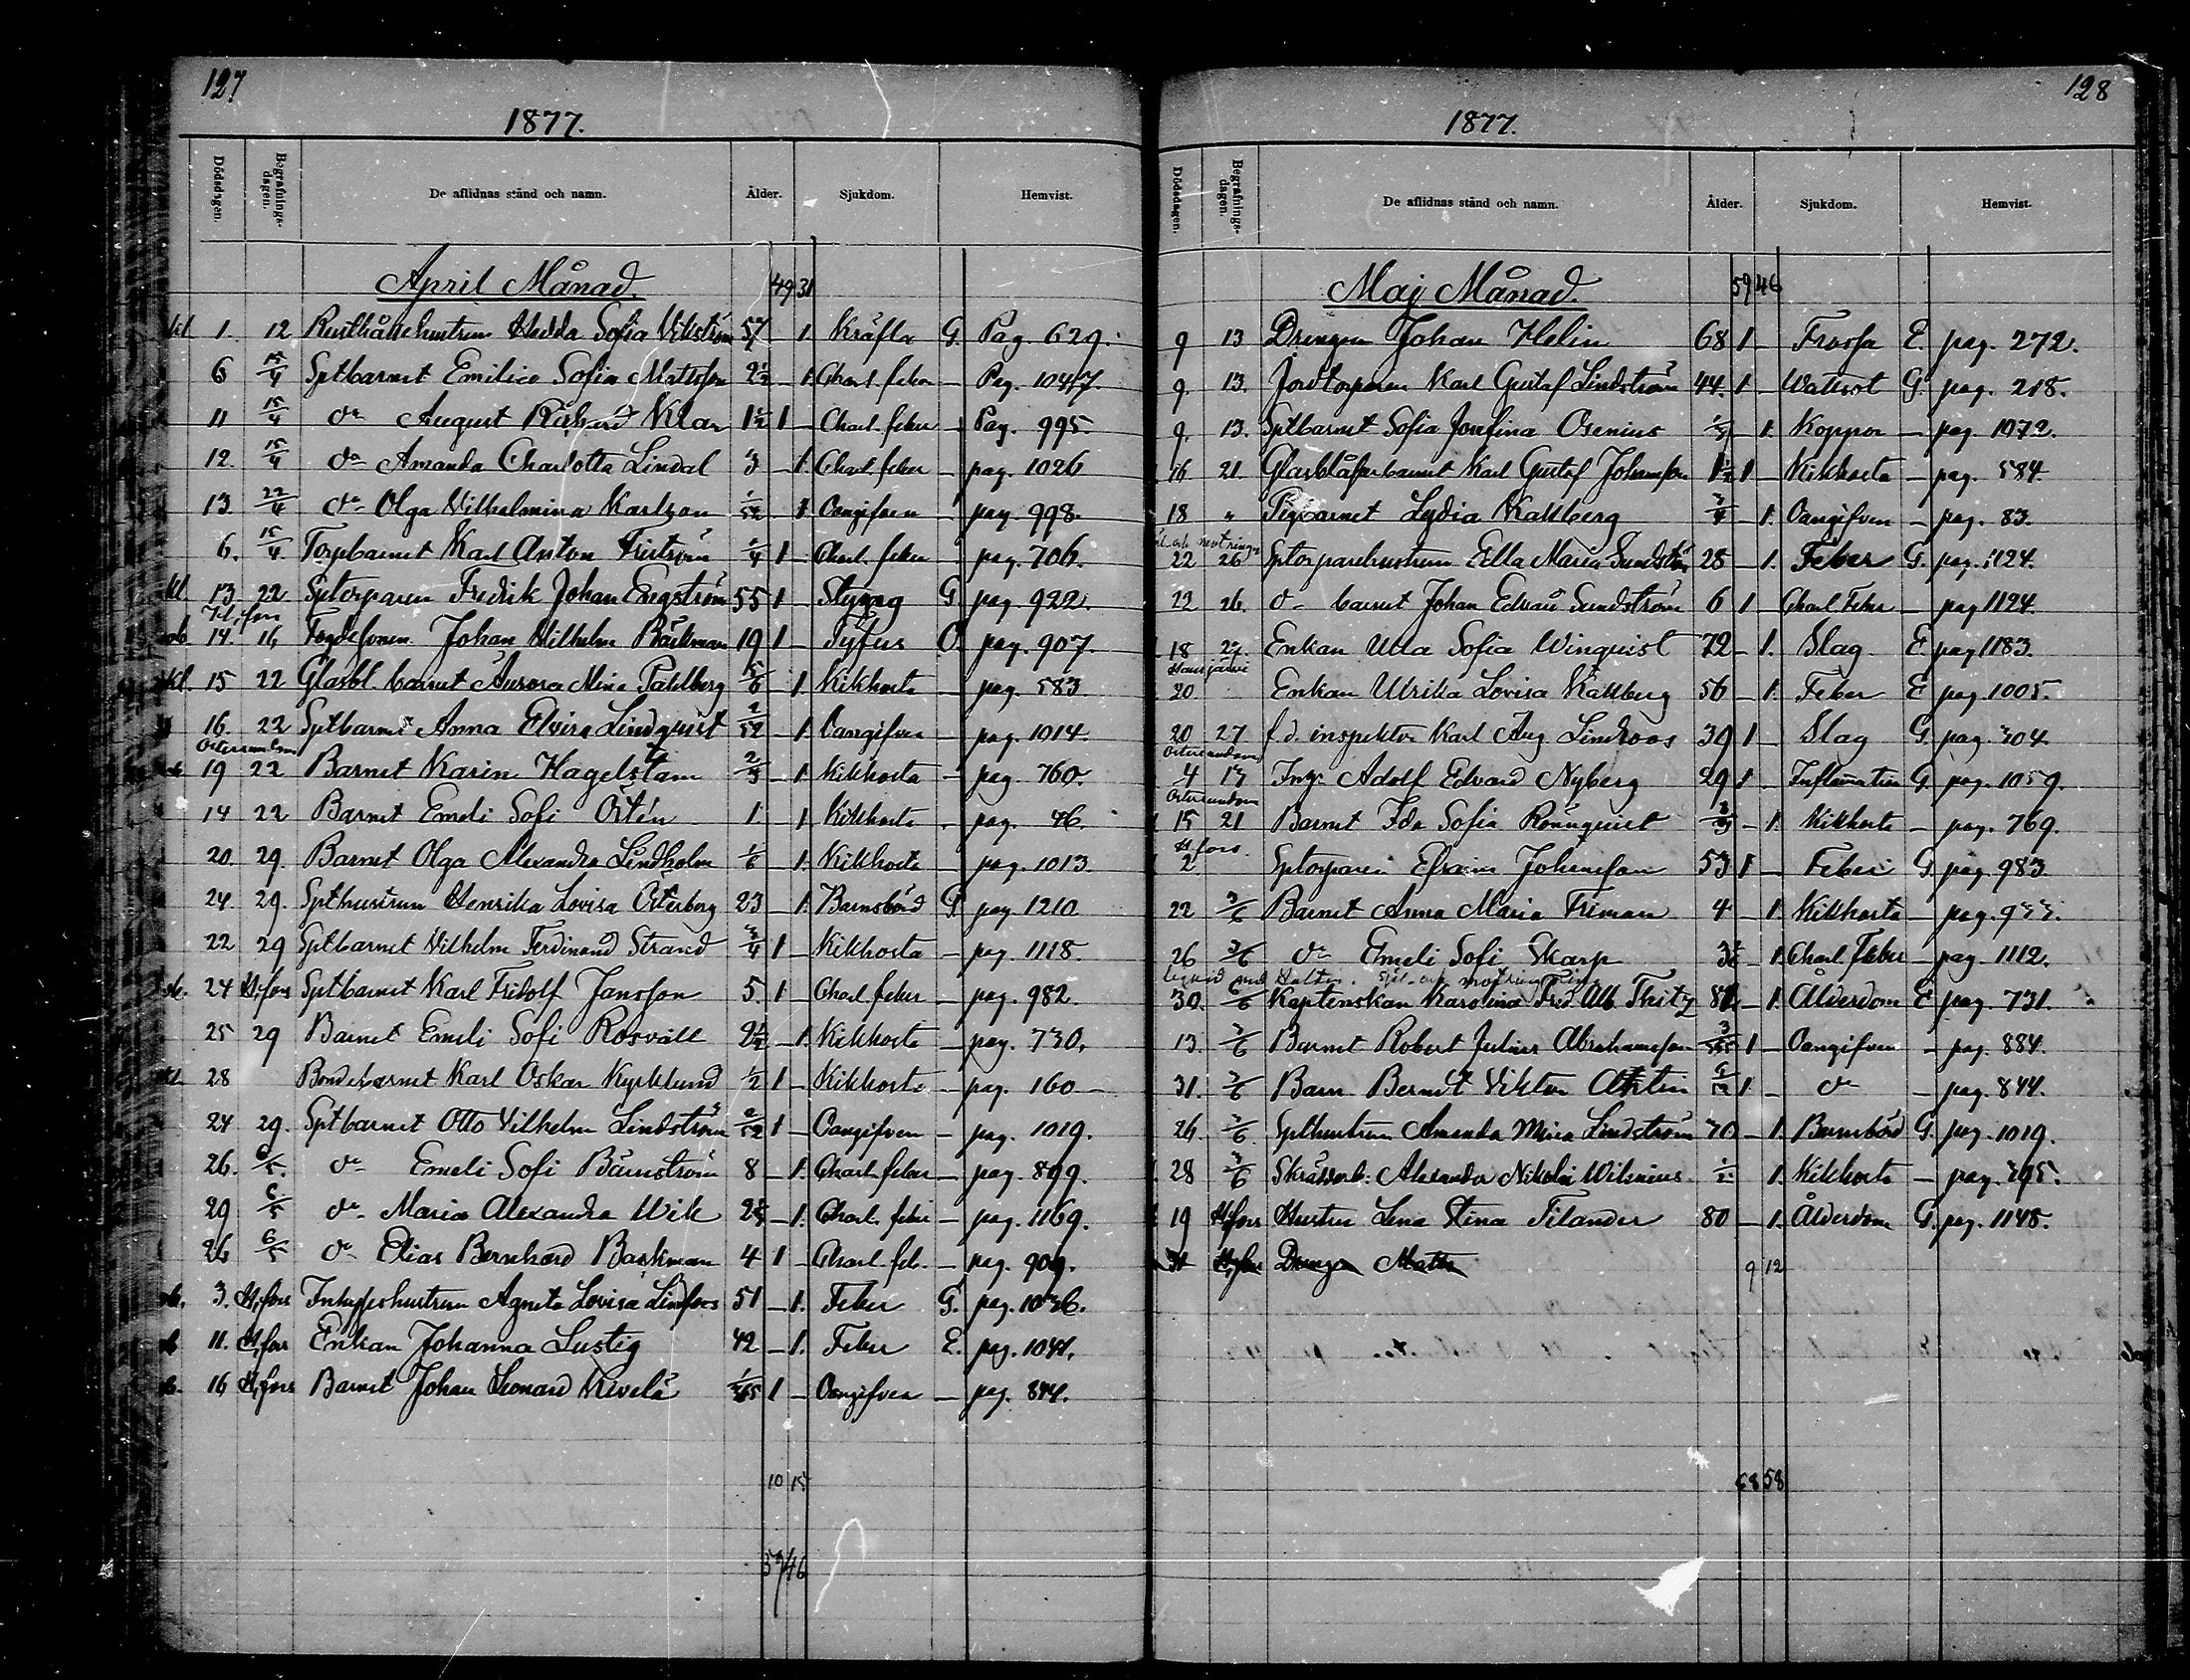 127
1877.
Dödsdagen. Begrafnings-dagen. De aflidnas stånd och namn. Ålder. Sjukdom. Hemvist.
April Månad. 49 31
1. 12 Rusthållehustrun Hedda Sofia Vikström 57 – 1. Kräfta G. Pag. 629.
6 15/4 Sptbarnet Emilia Sofia Mattsson 2 1/2 – 1. Charl. feber – Pag. 1047.
11 15/4 do August Rikard Klar 1 1/2 1 – Charl. feber – Pag. 995.
12. 15/4 do Amanda Charlotta Lindal 3 – 1. Charl. feber – pag. 1026
13 22/4 do Olga Vilhelmina Karlson 1/52 – 1. Oangifven – pag. 998.
6. 15/4 Torpbarnet Karl Anton Friström 1/4 1 – Charl. feber – pag. 706.
kl. 13 22 Sptorparen Fredrik Johan Engström 55 1 – Stygng G pag. 922.
H,fors
14. 16 Fogdesonen Johan Wilhelm Bäckman 19 1 – Tyfus O. pag. 907.
kl. 15 22 Glasbl. barnet Aurora Mina Pahlberg 5/6 – 1 Kikhosta – pag. 583
16. 22 Sptbarnet Anna Elvira Lindqvist 2/52 – 1. Oangifven – pag. 1014.
Östersundom
19 22 Barnet Karin Hagelstam 2/3 – 1. Kikhosta – pag. 760.
14 22 Barnet Emeli Sofi Östén 1. – 1 Kikhosta – pag. 46.
20 29. Barnet Olga Alexandra Lindholm 1/6 – 1. Kikhosta – pag. 1013.
24. 29. Spthustrun Henrika Lovisa Österberg 23 – 1. Barnsbörd G pag. 1210
22 29 Sptbarnet Vilhelm Ferdinand Strand 3/4 1 – Kikhosta – pag. 1118.
24 H,fors Sptbarnet Karl Fridolf Jansson 5. 1 Charl. feber – pag. 982.
25 29 Barnet Emeli Sofi Rosvall 2 1/2 – 1. Kikhosta – pag. 730.
28 Bondebarnet Karl Oskar Kyrklund 1/2 1 – Kikhosta – pag. 160 –
24 29. Sptbarnet Otto Vilhelm Lindström 2/52 1 – Oangifven – pag. 1019.
26. 6/5. do Emeli Sofi Bärnström 8 – 1. Charl. feber – pag. 899.
29 6/5 do Maria Alexandra Wik – 1. Charl. feber – pag. 1169.
26 6/5 do Elias Bernhard Backman 4 1 – Charl. feb. – pag. 909.
3. H,fors Inhyseshustrun Agneta Lovisa Lindfors 51 – 1. Feber G. pag. 1036.
11. H,fors Enkan Johanna Lustig 42 – 1. Feber E. pag. 1041.
16 H,fors Barnet Johan Leonard Kivelä 1 – Oangifven – pag. 844.
10 15
59 46
128
1877.
Dödsdagen. Begrafnings-dagen. De aflidnas stånd och namn. Ålder. Sjukdom. Hemvist.
Maj Månad. 59 46
9 13 Drengen Johan Helin 68 1 – Frossa E. pag. 272.
9. 13. Jordtorparen Karl Gustaf Lindström 44. 1. – Wattsot G. pag. 218.
9. 13. Sptbarnet Sofia Josefina Osenius – 1. Koppor – pag. 1072.
16 21. Glasblåsarbarnet Karl Gustaf Johansson 1 1/2 1 – Kikhosta – pag. 584.
18 " Pigbarnet Lydia Kallberg 3/4 – 1. Oangifven – pag. 83.
22 26 Sptorparehustrun Ulla Maria Sundström 28 – 1. Feber G. pag. 1124.
22 26. do barnet Johan Edvard Sundström 6 1 – Charl. Feber – pag 1124.
18 27. Enkan Ulla Sofia Winqvist 72 – 1. Slag E. pag 1183.
Hausjärvi
20 Enkan Ulrika Lovisa Kallberg 56 – 1. Feber E pag. 1005.
20 27. f.d. inspektor Karl Aug. Lindroos 39 1 – Slag G. pag. 304
Östersundom
4 13 Adolf Edvard Nyberg 29 1 – Inflamation G. pag. 1059.
Östersundom
15 21 Barnet Ida Sofia Rönnqvist – 1. Kikhosta – pag. 769.
H,fors.
2 Sptorparen Efraim Johansson 53 1 – Feber G. pag. 983
22 3/6 Barnet Anna Maria Friman 4 – 1. Kikhosta – pag. 933.
26 3/6 do Emeli Sofi Skarp – 1. Charl. Feber – pag. 1112.
30. Kaptenskan Karolina Fred. Alb. Thitz – 1. Ålderdom E pag. 731.
13. 3/6 Barnet Robert Julius Abrahamsson 1 – Oangifven – pag. 884.
31. 3/6 Barn Berndt Viktor 1 – do – pag. 844.
26. 3/6 Spthustrun Amanda Mina Lindström 30 – 1. Barnsbörd G. pag. 1019.
28 3/6 Skräddarb: Alexander Nikolai Wilenius 1/2 1. Kikhosta – pag. 395.
19 H,fors Hustru Lena Stina Tilander 80 – 1. Ålderdom G. pag. 1148.
31 H,fors Drengen Matts
9 12
68 58